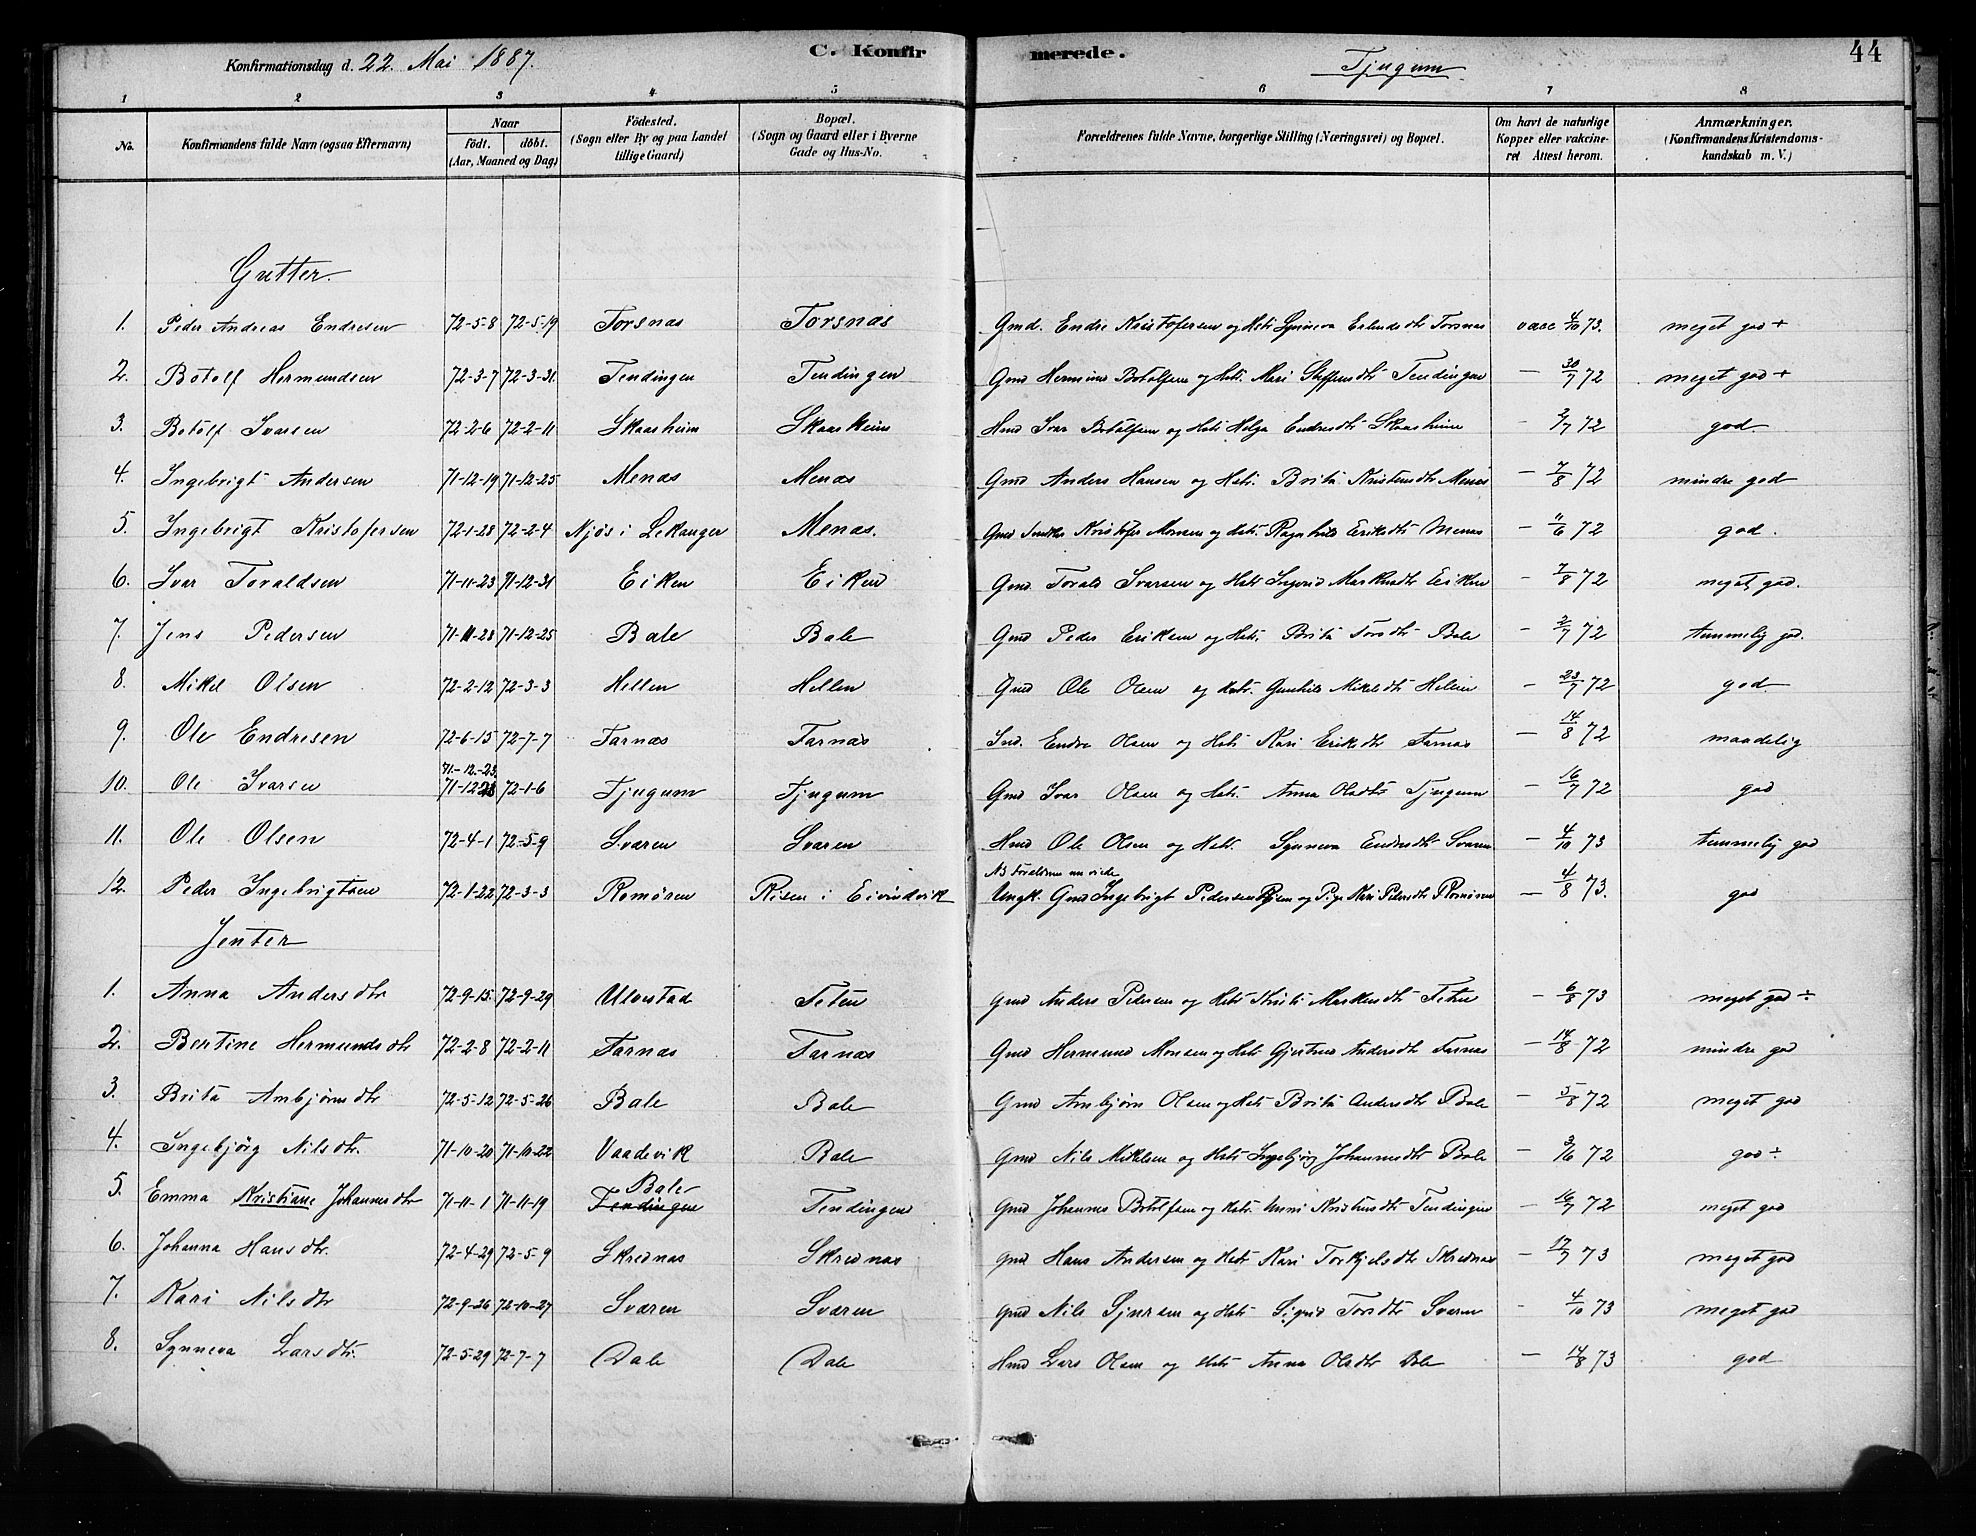 Konfirmationsdag d. 22. Mai 1887. C. Konfirmerede. Tjugum 44
1 2 3 4 5 6 7 8
No. Konfirmandens fulde Navn (ogsaa Efternavn) Naar födt. döbt. (Aar, Maaned og Dag) Födested. (Sogn eller By og paa Landet tillige Gaard) Bopæl. (Sogn og Gaard eller i Byerne Gade og Hus-No. Forældrenes fulde Navne, borgerlige Stilling (Næringsvei) og Bopæl. Om havt de naturlige Kopper eller vakcineret Attest herom. Anmærkninger. (Konfirmandens Kristendomskundskab m. V.)
Gutter.
1. Peder Andreas Endresen 72-5-8 72-5-19 Torsnas Torsnas Gmd. Endre Kristofersen og Hstr Synneva Erlendsdtr Torsnas vacc 4/10 73. meget god +
2. Botolf Hermundsen 72-3-7 72-3-31 Tendingen Tendingen Gmd Hermund Botolfsen og Hstr. Mari Steffensdtr Tendingen — 30/7 72 meget god +
3. Botolf Ivarsen 72-2-6 72-2-11 Skaasheim Skaasheim Hmd Ivar Botolfsen og Hstr Helga Endresdtr Skaasheim - 2/7 72 god.
4. Ingebrigt Andersen 71-12-19 71-12-25 Menas Menas Gmd Anders Hansen og Hstr. Brita Kristensdtr Menas — 7/8 72 mindre god
5. Ingebrigt Kristofersen 72-1-28 72-2-4 Njøs i Lekanger Menas. Gmd Kristofer Monsen og Hstr. Ragnhild Eriksdtr Menas — 11/6 72 god.
6. Ivar Tovaldsen 71-11-23 71-12-31 Eiken Eiken Gmd. Tovald Ivarsen og Hstr Ingerid Markusdtr Eiken — 7/8 72 meget god.
7. Jens Pedersen 71-11-28 71-12-25 Bale Bale Gmd Peder Eriksen og Hstr. Brita Torsdtr Bale — 2/7 72 temmelig god.
8. Mikel Olsen 72-2-12 72-3-3 Hellen Hellen Gmd Ole Olsen og Hstr. Gunhild Mikelsdtr Hellen — 23/7 72 god
9. Ole Endresen 72-6-15 72-7-7 Farnas Farnas Ind. Endre Olsen og Hstr Kari Eriksdtr Farnas — 14/8 72 maadelig
71-12-23.
10. Ole Ivarsen 71-12 23 72-1-6 Tjugum Tjugum Gmd Ivar Olsen og Hstr. Anna Olsdtr Tjugum — 16/7 72 god
11. Ole Olsen 72-4-1 72-5-9 Svaren Svaren Hmd Ole Olsen og Hstr. Synneva Endresdtr Svaren — 4/10 73 temmelig god
NB Forældrene nu viede
12. Peder Ingebrigtsen 72-1-22 72-3-3 Romøren Risen i Eivindvik Ungk. Gmd Ingebrigt Pedersen og Pige Kari Pedersdtr Romøren — 4/8 73. god
Jenter
1. Anna Andersdtr 72-9-15. 72-9-29 Ulvestad Feten Gmd Anders Pedersen og Hstr Kristi Markusdtr Feten — 6/8 73 meget god ÷
2. Bertine Hermundsdtr 72-2-8 72-2-11 Farnas Farnas Gmd Hermund Monsen og Hstr Gjertrud Andersdtr Farnas — 14/8 72 mindre god
3. Brita Ambjørnsdtr 72-5-12 72-5-26 Bale Bale Gmd Ambjørn Olsen og Hstr Brita Andersdtr Bale — 5/8 72 meget god
4. Ingebjörg Nilsdtr. 71-10-20 71-10-22 Vaadevik Bale Gmd Nils Mikelsen og Hstr. Ingebjørg Johannesdtr Bale — 3/6 72 god ÷
Bale
5. Emma Kristiane Johannesdtr 71-11-1 71-11-19 Tendingen Tendingen Gmd Johannes Botolfsen og Hstr. Unni Kristensdtr Tendingen — 16/7 72 meget god
6. Johanna Hansdtr. 72-4-29 72-5-9 Skrednas Skrednas Gmd Hans Andersen og Hstr Kari Torkjelsdtr Skrednas — 17/7 73 meget god
7. Kari Nilsdtr 72-9-26 72-10-27 Svaren Svaren Gmd Nils Sjursen og Hstr Sigrid Torsdtr Svaren - 4/10 73 meget god
8. Synneva Larsdtr. 72-5-29 72-7-7 Dale Dale Hmd Lars Olsen og Hstr Anna Olsdtr Dale — 14/8 73 god